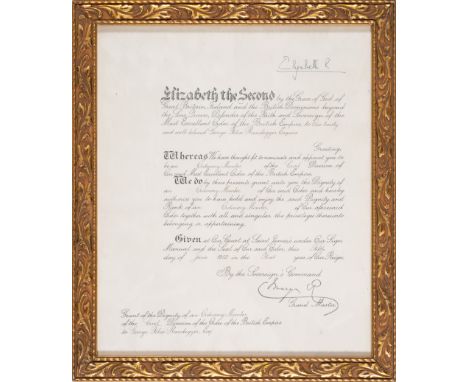 Elizabeth R
Elizabeth the Second by the Grace of God of
Great Britain, Ireland and the British Dominions beyond
the Seas Queen, Defender of the Faith and Sovereign of the
Most Excellent Order of the British Empire to Our trusty
and well beloved George Peter Esquire
Greeting
Whereas We have thought fit to nominate and appoint you to
be an Ordinary Member of the Civil Division of
Our said Most Excellent Order of the British Empire
We do by these presents grant unto you the Dignity of
an Ordinary Member of Our said Order and hereby
authorise you to have hold and enjoy the said Dignity and
Rank of an Ordinary Member of Our aforesaid
Order together with all and singular the privileges thereunto
belonging or appertaining.
Given at Our Court at Saint James's under Our Sign
Manual and the Seal of Our said Order this Fifth
day of June 1952 in the First year of Our Reign.
By the Sovereign's Command.
Grand Master
Grant of the Dignity of an Ordinary Member
of the Civil Division of the Order of the British Empire
to George Peter Esq.